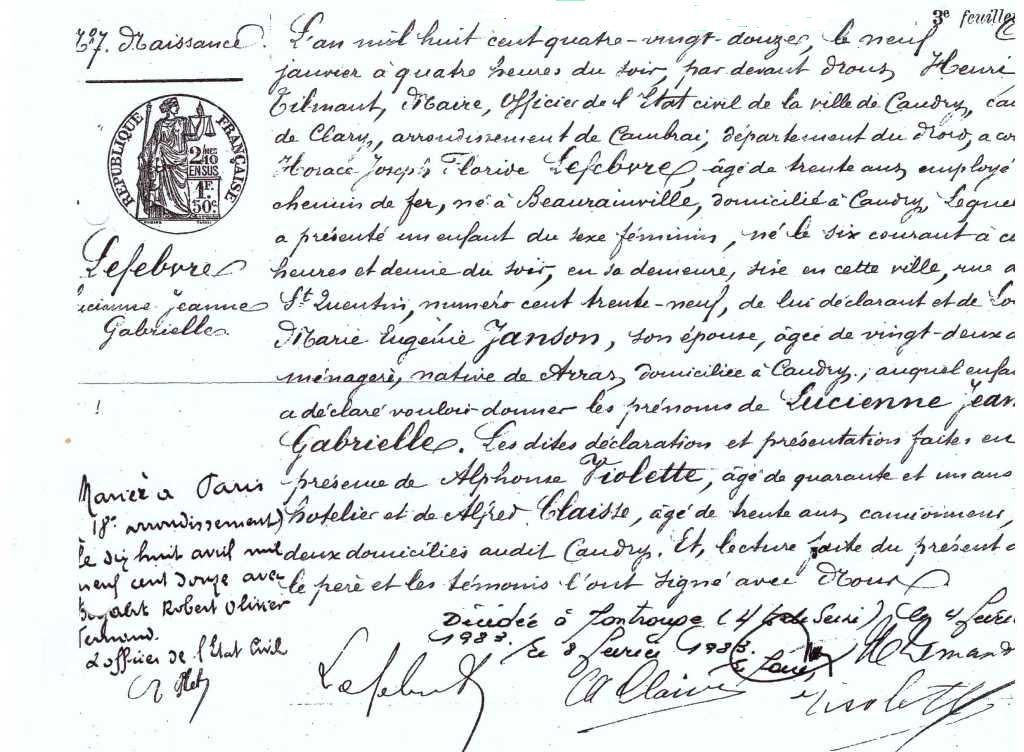 3e feuillet
7. Naissance
RÉPUBLIQUE FRANÇAISE
2/10
EN SUS
1F.
50c
Lefebvre
Lucienne Jeanne
Gabrielle
L'an mil huit cent quatre-vingt-douze, le neuf
janvier à quatre heures du soir, par devant Nous, Henri
Tilmant, Maire, Officier de l'Etat civil de la ville de Caudry, can
de Clary, arrondissement de Cambrai, département du Nord, a com
Horace Joseph Florive Lefebvre, âgé de trente ans, employé
chemin de fer, né à Beaurainville, domicilié à Caudry, Lequel
a présenté un enfant du sexe féminin, né le six courant à
heures et demie du soir, en sa demeure, sise en cette ville, rue
St Quentin, numéro cent trente-neuf, de lui déclarant et de
Marie Eugénie Janson, son épouse, âgée de vingt-deux a
ménagère, native de Arras, domiciliée à Caudry, auquel enfan
a déclaré vouloir donner les prénoms de Lucienne Jean
Gabrielle. Les dites déclaration et présentation faites en
présence de Alphonse Violette, âgé de quarante et un ans
hôtelier et de Alfred Claisse, âgé de trente ans, camionneur,
deux domiciliés audit Caudry. Et, lecture faite du présent a
le père et les témoins l'ont signé avec Nous
Mariée à Paris
18e arrondissement)
le dix huit avril mil
neuf cent douze avec
Robert Olivier
Fernand.
L'officier de l'Etat Civil
Décédée à
1983. le 8 février 1983.
Lefebvre